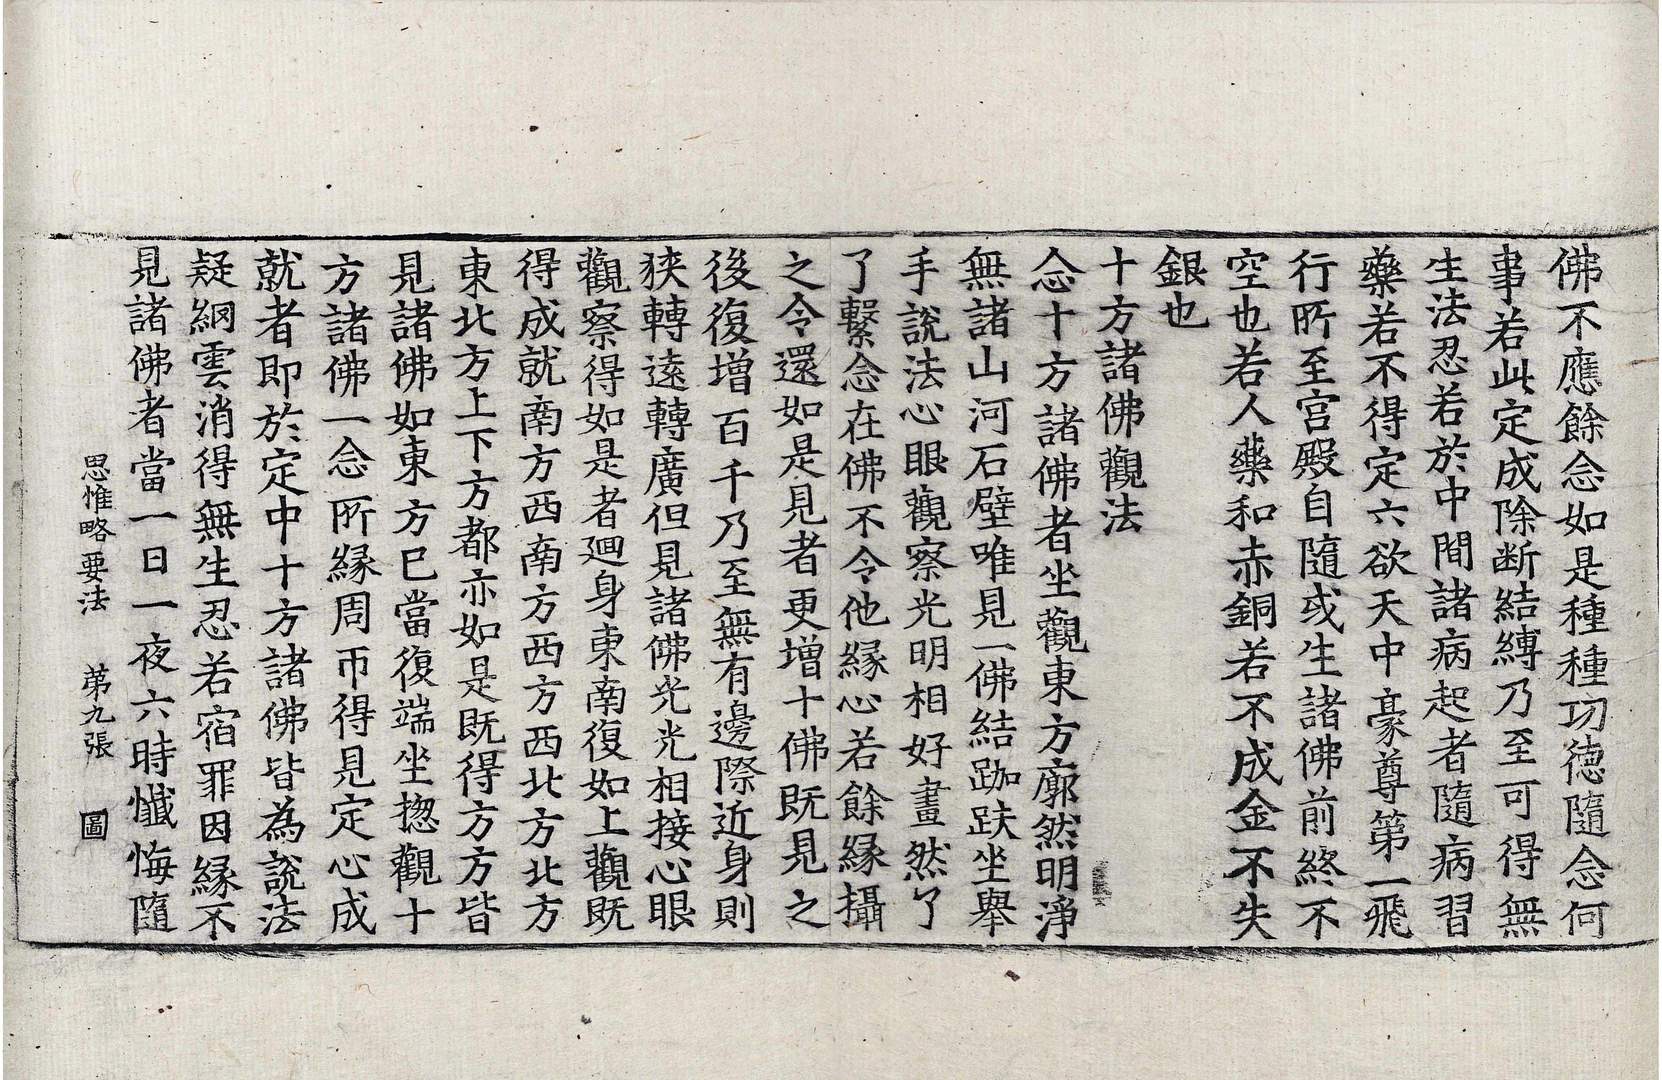 佛不應餘念如是種種功德隨念何
事若此定成除断結縛乃至可得無
生法忍若於中間諸病起者隨病習
藥若不得定六欲天中豪尊第一飛
行所至宮殿自隨或生諸佛前終不
空也若人藥和赤銅若不成金不失
銀也
十方諸佛觀法
念十方諸佛者坐觀東方廓然明淨
無諸山河石壁唯見一佛結跏趺坐舉
手說法心眼觀察光明相好畫然了
了繫念在佛不令他緣心若餘緣攝
之令還如是見者更增十佛既見之
後復增百千乃至無有邊際近身則
狹轉遠轉廣但見諸佛光光相接心眼
觀察得如是者迴身東南復如上觀既
得成就南方西南方西方西北方北方
東北方上下方都亦如是既得方方皆
見諸佛如東方已當復端坐揔觀十
方諸佛一念所緣周帀得見定心成
就者即於定中十方諸佛皆為說法
疑網雲消得無生忍若宿罪因緣不
見諸佛者當一日一夜六時懺悔隨
思惟略要法 苐九張 圖